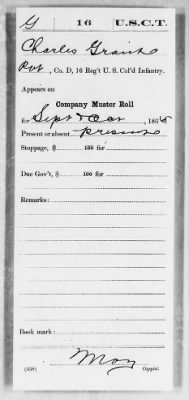 G 16 U.S.C.T.
Charles Grant
Pvt., Co. D, 16 Reg't U. S. Col'd Infantry.
Appears on
Company Muster Roll
for Sept & Oct, 1865
Present or absent present
Stoppage, $ 100 for
Due Gov't, $ 100 for
Remarks:
Book mark:
(358) Copyist.